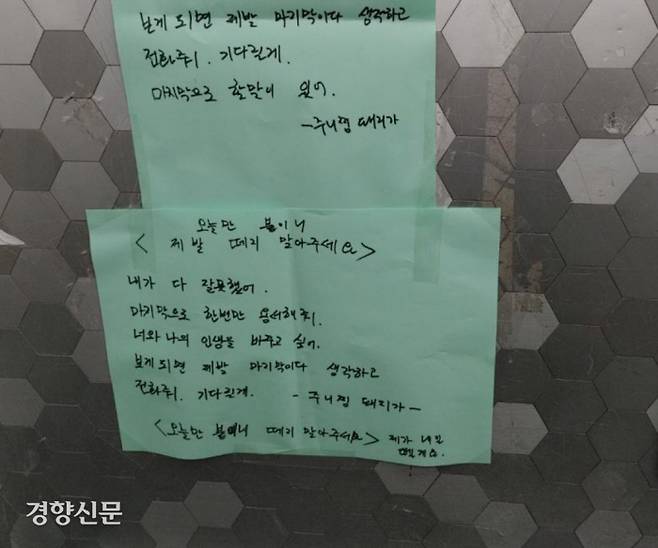 보게 되면 제발 마지막이다 생각하고
전화줘. 기다릴게.
마지막으로 할말이 있어.
-주니찜 돼지가
오늘만 붙이니
< 제발 떼지 말아주세요 >
내가 다 잘못했어.
마지막으로 한번만 용서해줘.
너와 나의 인생을 바꾸고 싶어.
보게되면 제발 마지막이다 생각하고
전화줘. 기다릴게. - 주니찜 돼지가 -
<오늘만 붙이니 떼지 말아주세요> 제가 나오
경향신문